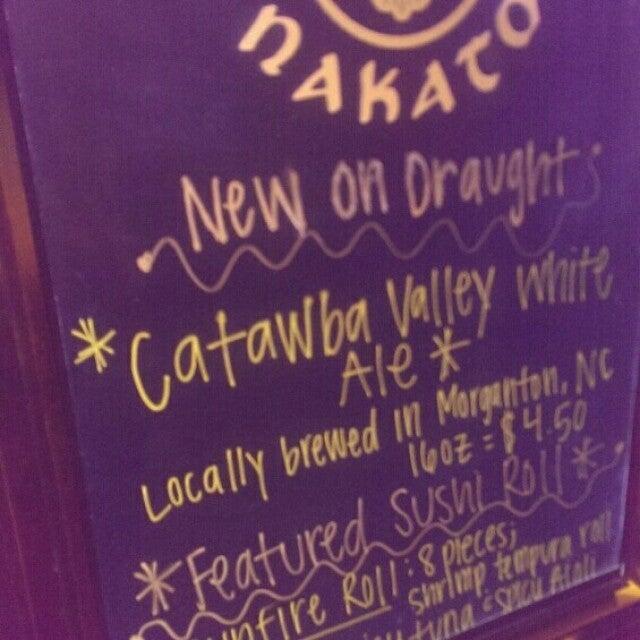 NAKATO
New on Draught:
*Catawba Valley White
Ale*
Locally brewed in Morganton, NC
16oz = $4.50
*Featured Sushi Roll*
Roll: 8 pieces;
shrimp tempura roll
tuna